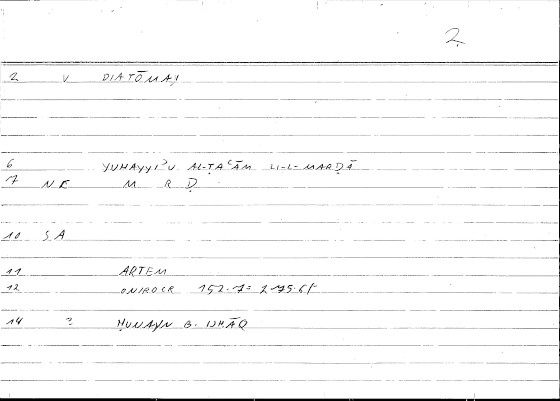 2.
2 V DIATŌMAI
6 YUHAYYIʾU AL-ṬAʿĀM LI-L-MARḌĀ
7 NE M R Ḍ
10 SA
11 ARTEM
12 ONIROCR 152.7 = 275.6f
14 ? ḤUNAYN B. ISḤĀQ